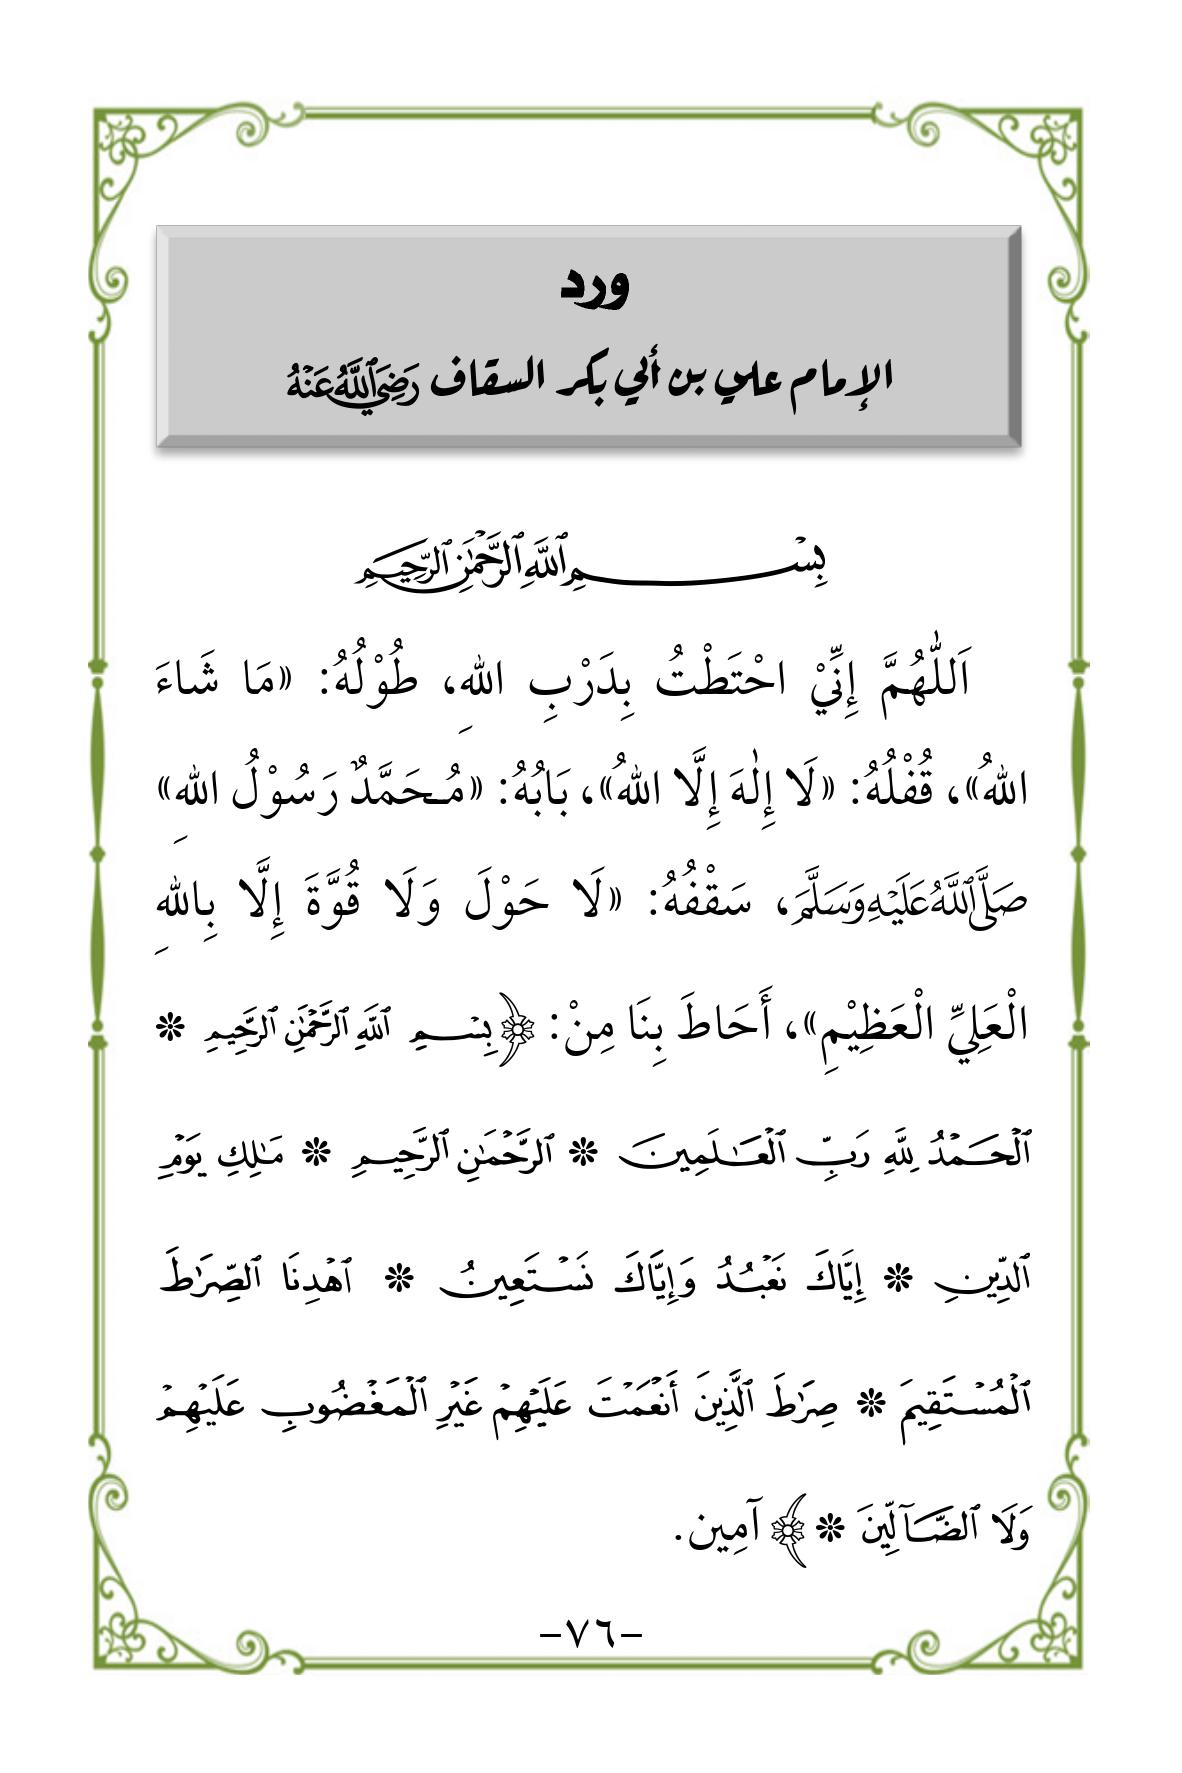 ورد
الإمام علي بن أبي بكر السقاف رَضِيَ ٱللَّهُ عَنْهُ
بِسْمِ ٱللَّهِ ٱلرَّحْمَٰنِ ٱلرَّحِيمِ
اَللّٰهُمَّ إِنِّيْ احْتَطْتُ بِدَرْبِ اللهِ، طُوْلُهُ: «مَا شَاءَ
اللهُ»، قُفْلُهُ: «لَا إِلٰهَ إِلَّا اللهُ»، بَابُهُ: «مُـحَمَّدٌ رَسُوْلُ اللهِ»
صَلَّى ٱللَّهُ عَلَيْهِ وَسَلَّمَ، سَقْفُهُ: «لَا حَوْلَ وَلَا قُوَّةَ إِلَّا بِاللهِ
الْعَلِيِّ الْعَظِيْمِ»، أَحَاطَ بِنَا مِنْ: ﴿بِسْمِ ٱللَّهِ ٱلرَّحْمَٰنِ ٱلرَّحِيمِ *
ٱلْحَمْدُ لِلَّهِ رَبِّ ٱلْعَٰلَمِينَ * ٱلرَّحْمَٰنِ ٱلرَّحِيمِ * مَٰلِكِ يَوْمِ
ٱلدِّينِ * إِيَّاكَ نَعْبُدُ وَإِيَّاكَ نَسْتَعِينُ * ٱهْدِنَا ٱلصِّرَٰطَ
ٱلْمُسْتَقِيمَ * صِرَٰطَ ٱلَّذِينَ أَنْعَمْتَ عَلَيْهِمْ غَيْرِ ٱلْمَغْضُوبِ عَلَيْهِمْ
وَلَا ٱلضَّآلِّينَ *﴾ آمِين.
-٧٦-